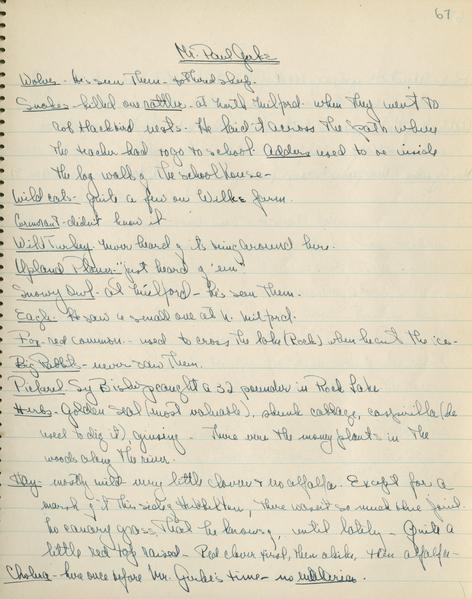 67
Mr. Paul
Wolves - He's seen them -
Snakes - killed one rattler at North Milford when they went to
rob blackbird nests. He laid it across the path where
the teacher had to go to school Adders used to be inside
the log walls of the schoolhouse -
Wildcats - quite a few on Wilks farm.
Cormorant - didn't know it
Wild Turkey. never heard of its being around here.
Upland Plover "just heard of 'em"
Snowy Owl - at Milford - he's seen them.
Eagle. He saw a small one at N. Milford.
Fox - red common - used to cross the lake (Rock) when he on the ice -
Big Rabbits - never saw them.
Pickerel - Sy caught a 32 pounder in Rock Lake
Herbs - Golden seal (most valuable), skunk cabbage, (he
used to dig it) ginseng - There were the many plants in the
woods along the river.
Hay - mostly wild very little clover & no alfalfa. Except for a
marsh of it this side of there wasn't so much blue joint.
no canary grass, that he knows of, until lately - Quite a
little red top raised - Red clover first, then alsike, then alfalfa -
Cholera - here once before Mr. time - no malaria.